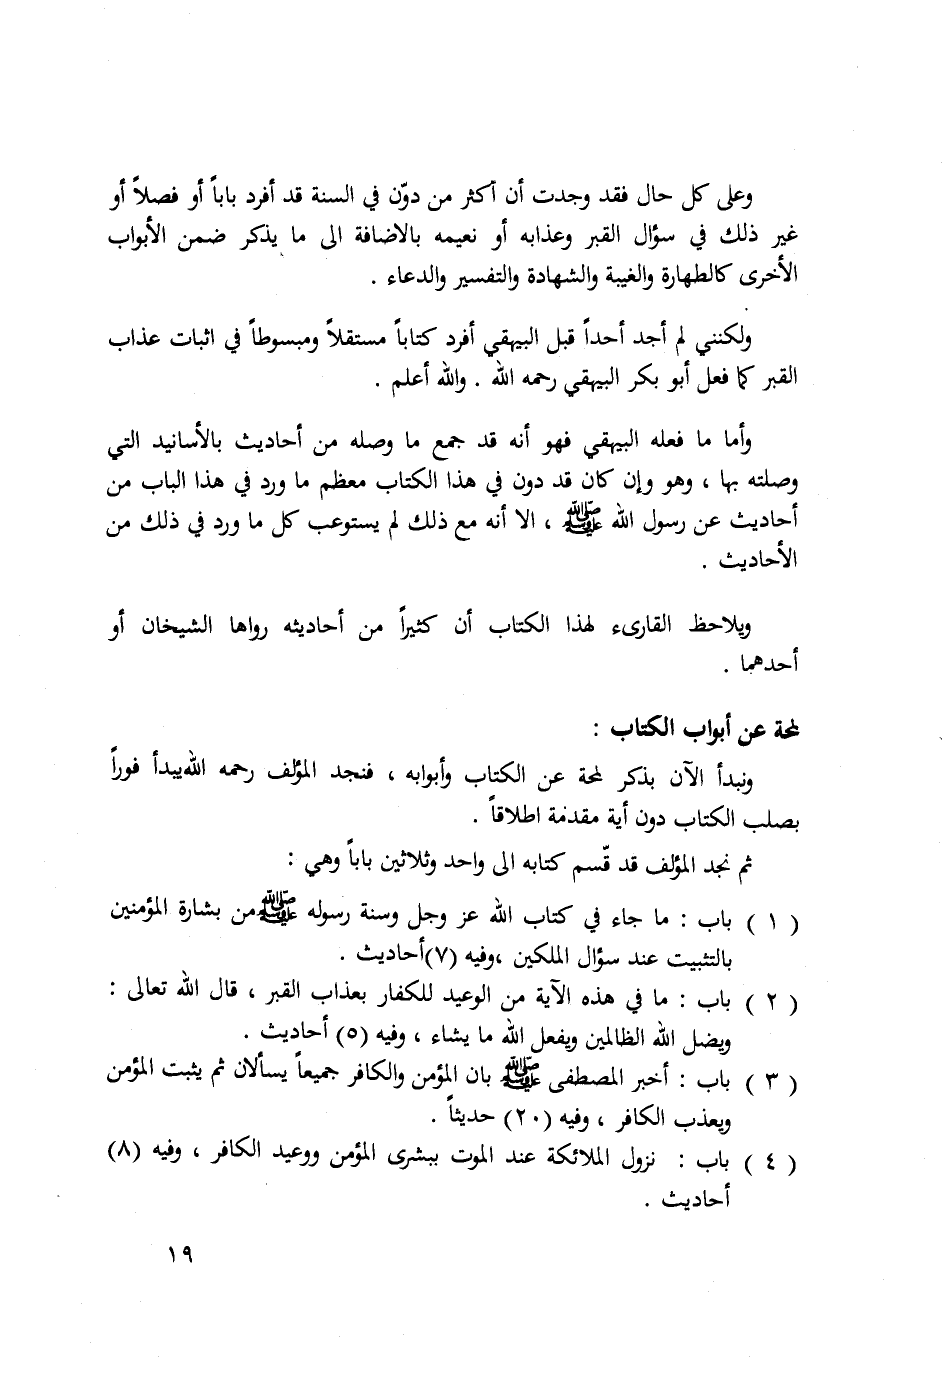 وعلى كل حال فقد وجدت أن أكثر من دوّن في السنة قد أفرد باباً أو فصلاً أو
غير ذلك في سؤال القبر وعذابه أو نعيمه بالاضافة الى ما يذكر ضمن الأبواب
الأخرى كالطهارة والغيبة والشهادة والتفسير والدعاء .
ولكنني لم أجد أحداً قبل البيهقي أفرد كتاباً مستقلاً ومبسوطاً في اثبات عذاب
القبر كما فعل أبو بكر البيهقي رحمه الله . والله أعلم .
وأما ما فعله البيهقي فهو أنه قد جمع ما وصله من أحاديث بالأسانيد التي
وصلته بها ، وهو وإن كان قد دون في هذا الكتاب معظم ما ورد في هذا الباب من
أحاديث عن رسول الله ﷺ ، الا أنه مع ذلك لم يستوعب كل ما ورد في ذلك من
الأحاديث .
ويلاحظ القارىء لهذا الكتاب أن كثيراً من أحاديثه رواها الشيخان أو
أحدهما .
لمحة عن أبواب الكتاب :
ونبدأ الآن بذكر لمحة عن الكتاب وأبوابه ، فنجد المؤلف رحمه الله يبدأ فوراً
بصلب الكتاب دون أية مقدمة اطلاقاً .
ثم نجد المؤلف قد قسّم كتابه الى واحد وثلاثين باباً وهي :
( ١ ) باب : ما جاء في كتاب الله عز وجل وسنة رسوله ﷺ من بشارة المؤمنين
بالتثبيت عند سؤال الملكين ،وفيه (٧)أحاديث .
( ٢ ) باب : ما في هذه الآية من الوعيد للكفار بعذاب القبر ، قال الله تعالى :
ويضل الله الظالمين ويفعل الله ما يشاء ، وفيه (٥) أحاديث .
( ٣ ) باب : أخبر المصطفى ﷺ بان المؤمن والكافر جميعاً يسألان ثم يثبت المؤمن
ويعذب الكافر ، وفيه (٢٠) حديثاً .
( ٤ ) باب : نزول الملائكة عند الموت ببشرى المؤمن ووعيد الكافر ، وفيه (٨)
أحاديث .
١٩